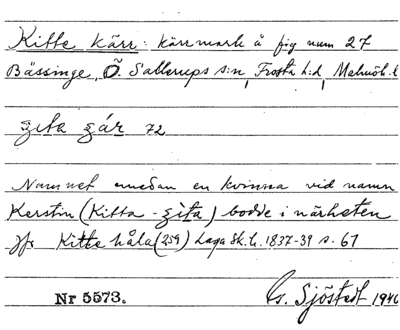 Kitte kärr: kärrmark å fig num 27
Bässinge, Ö. Sallerups s:n, Frosta h:d, Malmöh. l
ʒita ʒár 72
Namnet emedan en kvinna vid namn
Kerstin (Kitta - ʒita) bodde i närheten
jfr Kitte håla (259) Laga Sk. h. 1837-39 s. 67
Nr 5573. G. Sjöstedt 1946